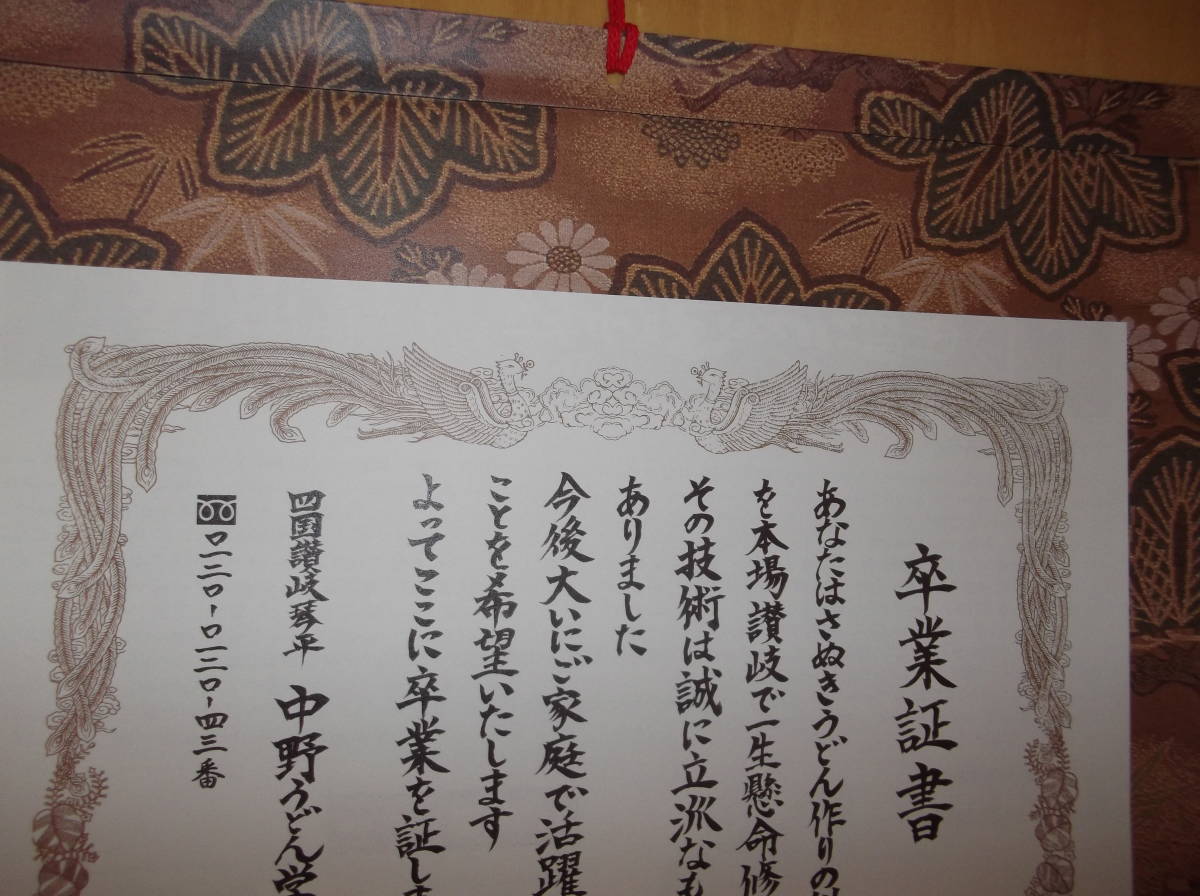 卒業証書
あなたはさぬきうどん作りの
を本場讃岐で一生懸命修
その技術は誠に立派なも
ありました
今後大いにご家庭で活躍
ことを希望いたします
よってここに卒業を証しま
四国讃岐琴平 中野うどん学
〇一二〇-〇一二〇-四三番